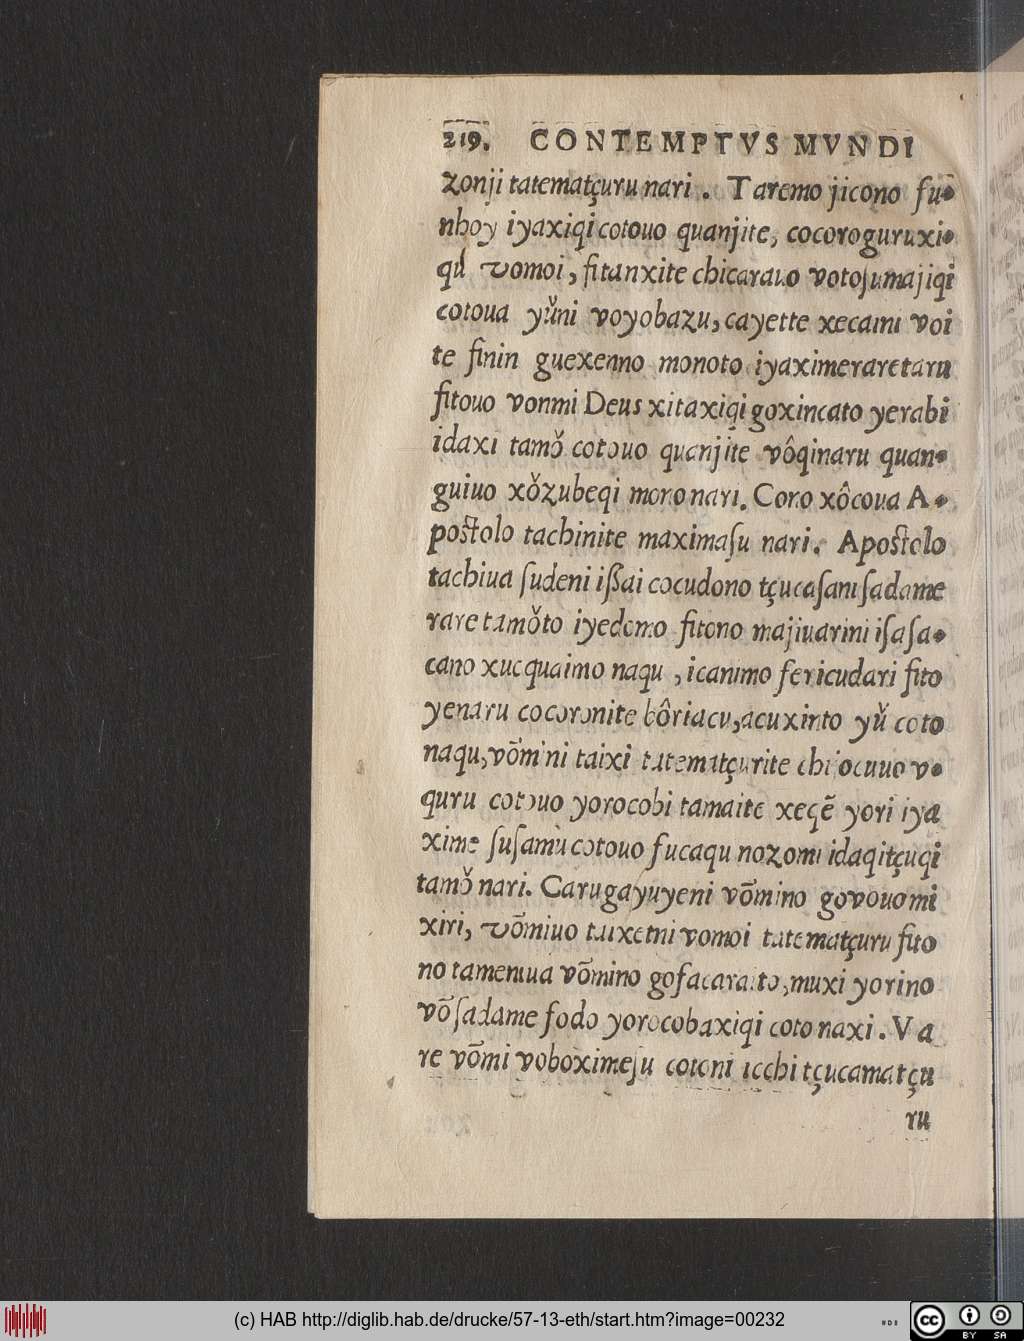 219. CONTEMPTVS MVNDI
zonji tatematçuru nari. Taremo jicono fu-
nboy iyaxiqi cotouo quanjite, cocoroguruxi-
qu vomoi, fitanxite chicarauo votoſumajiqi
cotoua yŭni voyobazu, cayette xecaini voi
te finin guexenno monoto iyaximeraretaru
fitouo vonmi Deus xitaxiqi goxincato yerabi
idaxi tamŏ cotouo quanjite vôqinaru quan-
guiuo xŏzubeqi moro nari. Coro xôcoua A-
poſtolo tachinite maximaſu nari. Apoſtolo
tachiua ſudeni iſſai cocudono tçucaſani ſadame
rare tamŏto iyedomo fitono majiuarini iſaſa-
cano xucquaimo naqu, icanimo fericudari fito
yenaru cocoronite bôriacu, acuxinto yŭ coto
naqu, võmini taixi tatematçurite chijocuuo v-
quru cotouo yorocobi tamaite xeqẽ yori iya
xime ſuſamu cotouo fucaqu nozomi idaqitçuqi
tamŏ nari. Carugayuyeni võmino govouomi
xiri, võmiuo taixetni vomoi tatematçuru fito
no tameniua võmino gofacaraito, muxi yorino
võſadame fodo yorocobaxiqi coto naxi. Va
re võmi voboximeſu cotoni icchi tçucamatçu
ru
(c) HAB http://diglib.hab.de/drucke/57-13-eth/start.htm?image=00232
cc BY SA